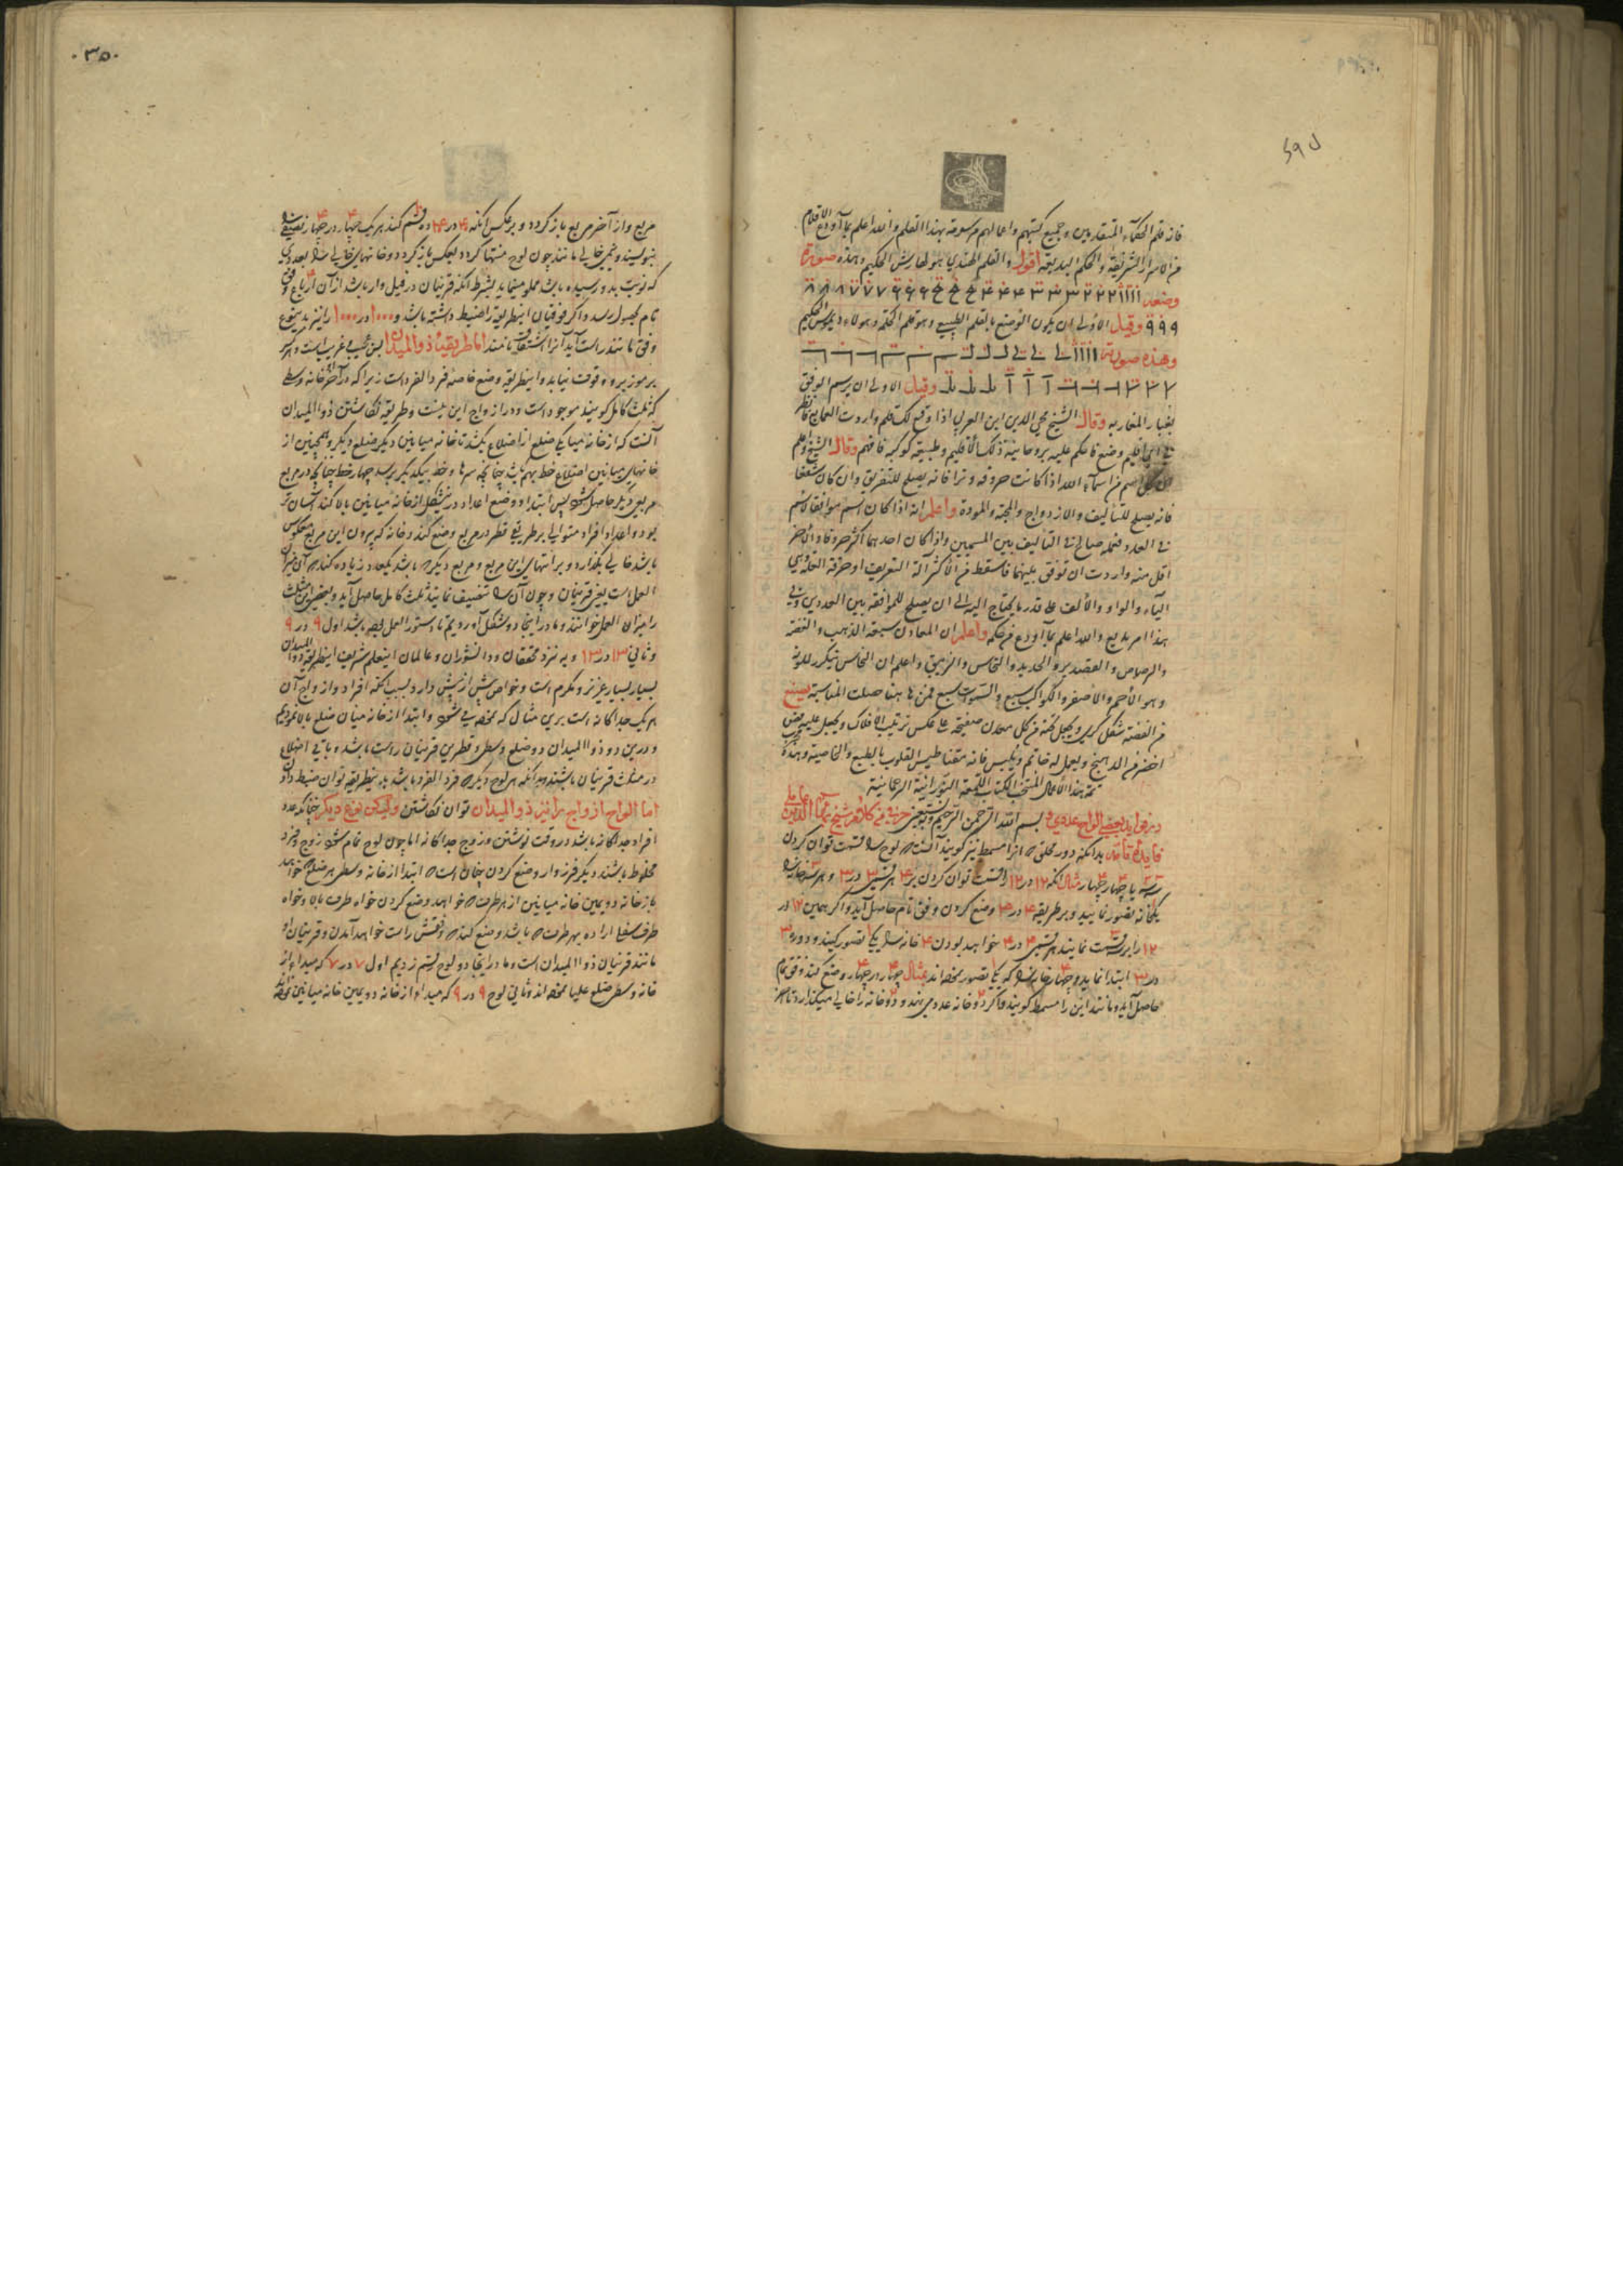 فانه قلم الحكماء المتقدمين وجميع كتبهم واعمالهم مرسومة بهذا القلم والله اعلم بما اودع الاقلام
من الاسرار الشريفة والحكم البديعه اقول والقلم الهندي هو لهارش الحكيم وهذه صورة
وضعه
٩ ٩ ٩ وقيل الاولى ان يكون الوضع بالقلم الطبيعي وهو قلم الحكمة وهو لاء ديموس الحكيم
وهذه صورته
وقيل الاولى ان يرسم الوفق
بغبار المغاربه وقال الشيخ محي الدين ابن العربي اذا وقع لك قلم واردت العمل به فانظر
في اي اقليم وضع فاحكم عليه بروحانية ذلك الاقليم وطبيعة كوكبه فافهم وقال الشيخ واعلم
ان كل اسم من اسماء الله اذا كانت حروفه وترا فانه يصلح للتفريق وان كان شفعا
فانه يصلح للتأليف والازدواج والمحبة والمودة واعلم انه اذا كان اسم موافقا لاسم
في العدد فمله صالح في التأليف بين المسميين واذا كان احدهما اكثر حروفا والآخر
اقل منه واردت ان توفق بينهما فاسقط من الاكثر آلة التعريف او حرف العلة وهي
الياء والواو والالف على قدر ما يحتاج اليه الى ان يصلح للموافقه بين العددين وفي
هذا امر بديع والله اعلم بما اودع من حكمه واعلم ان المعادن سبعة الذهب والفضة
والرصاص والقصدير والحديد والنحاس والزيبق واعلم ان النحاس يتكرر للونه
وهو الاحمر والاصفر والكواكب سبع والسموات سبع فمن ها هنا حصلت المناسبة يصنع
من الفضة شكل كري ويجعل تحته من كل معدن صفيحة على عكس ترتيب الافلاك ويجعل عليه فص
اخضر من الدهنج ويعمل له خاتم ويلبس فانه مقناطيس القلوب بالطبع والخاصية وهذه
تمة هذا الاعمال المنتخب الكتاب اللمعة النورانية الرحمانية
در فوايد بعضي الواح عددي بسم الله الرحمن الرحيم وبه نستعين
فايده قاعده بدانكه دور محلق كه انرا مسمط نيز كويند آنست كه لوح را قسمت توان كردن
سه سه يا چهار چهار مثال آنكه ١٢ در ١٢ را قسمت توان كردن بر ٤ هر قسمي ٣ در ٣ و هر سه خانه را
يكخانه تصور نمايند و بر طريقه ٤ در ٤ وضع كردن وفق تام حاصل آيد و اكر همين ١٢ در
١٢ را بر ٣ قسمت نمايند هر قسمي ٤ در ٤ خواهد بودن ٤ خانه را يكى تصور كنند و دوره ٣
در ٣ ابتدا نمايد و چهار خانه را كه يكى تصور نموده اند مثال چهار در چهار وضع كند وفق تام
حاصل آيد و مانند اين را مسمط كويند و اكر دو خانه عدد مي نهند و دو خانه را خالي ميكذارد تا هر
٣٥٠
مربع و از آخر مربع باز كردد و بر عكس آنكه ٤ در ٢٤ ده قسم كند هر يك چهار در چهار نصفي را
بنويسند و نيمي خالي مانند چون لوح منتها كردد بعكس باز كردد و خانهاي خالي را بعددي
كه نوبت بدو رسيده باشد مملو مينمايد بشرط آنكه قرينان در فيل وار باشد از آن ارباع وفق
تام بحصول رسد و اكر فوقيان اينطريقه را ضبط داشته باشد و ١٠٠٠ در ١٠٠٠ را نيز بدينوع
وفق نمانند راست آيد آنرا اشتقاق نامند اما طريقه ذو الميدان بس عجيب و غريب است و هر كس
بر موز برو وقوف نيابد و اينطريقه وضع خاصه فرد الفرد است زيرا كه در آخر خانه وسطي
كه ثلث كامل كويند موجود است و در ازواج اين نيست و طريقه نكاشتن ذو الميدان
آنست كه از خانه ميانكي ضلع از اضلاع بكيرد تا خانه ميانين ديكر ضلع ديكر و همچنين از
خانهاي ميانين اضلاع خط بهم كشد چنانچه سرهاء خط بيكديكر برسد چهار خط چنانكه در مربع
مربعي ديكر حاصل شود پس ابتداء وضع اعداد در شكل از خانه ميانين بالا كند آسان تر
بود و اعداد افراد متوالي بر طريقي قطر در مربع وضع كند و خانه كه بيرون اين مربع معكوس
باشد خالي بكذارد و بر انتهاي اين مربع و مربع ديكر كه باشد يكعدد زياده كند كه آن ميزان
العمل است يعني قرينان و چون آن را تنصيف نمايند ثلث كامل حاصل آيد و بعضي اين ثلث
را ميزان العمل خوانند و ما در اينجا دو شكل آورديم تا دستور العمل بوده باشد اول ٩ در ٩
و ثاني ١٣ در ١٣ و به نزد محققان و دانشوران و عالمان اينعلم شريف اينطريقه ذو الميدان
بسيار بسيار عزيز و مكرم است و خواص بيش از پيش دارد بسبب آنكه افراد و ازواج آن
هر يك جداكانه است بري مثال كه نموده مي شود و ابتدا از خانه ميان ضلع بالا نموديم
و درين دو ذو الميدان دو ضلع وسطي و قطرين قرينان راست باشد و باقي اضلاع
در مثلث قرينان باشند و بدانكه هر لوح ديكر كه فرد الفرد باشد بدينطريقه توان ضبط داد
اما الواح ازواج را نيز ذو الميدان توان نكاشتن وليكن نوع ديكر چنانكه عدد
افراد جداكانه باشد در وقت نوشتن و زوج جداكانه اما چون لوح تمام شود زوج و فرد
مخلوط باشند ديكر فرز وار وضع كردن چنان است كه ابتدا از خانه وسطي هر ضلع كه خواهد
يا از خانه دويمين خانه ميانين از هر طرف كه خواهد وضع كردن خواه طرف بالا و خواه
طرف سفلي اراده بهر طرف كه باشد وضع كند كه وفقش راست خواهد آمدن و قرينان او
مانند قرينان ذو الميدان است و ما در اينجا دو لوح رسم زديم اول ٧ در ٧ كه مبداء از
خانه وسطي ضلع عليا نموده اند و ثاني لوح ٩ در ٩ كه مبداء از خانه دويمين خانه ميانين نموده